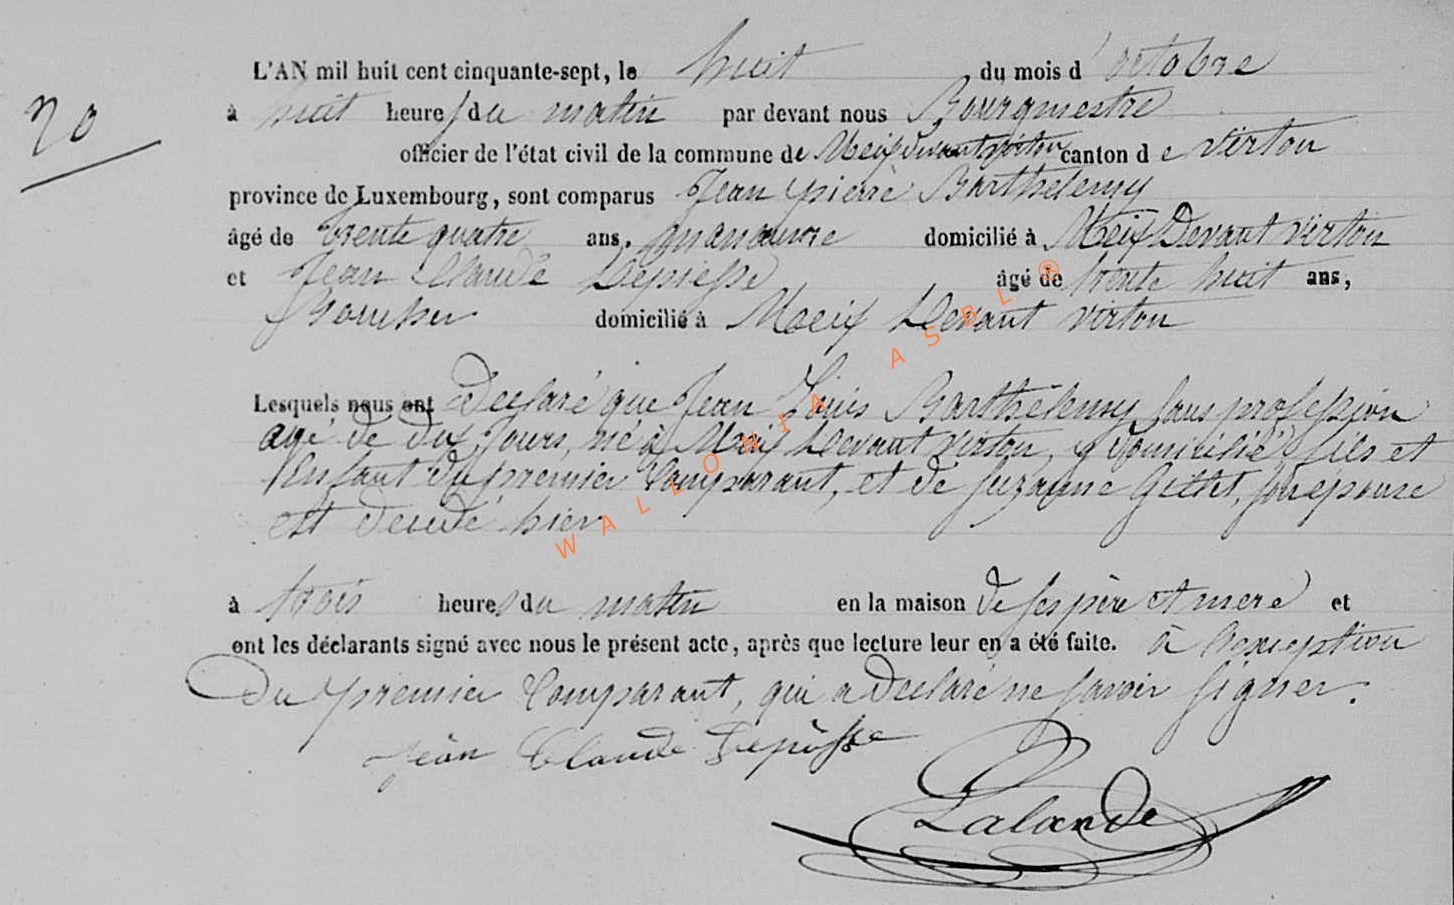 L'AN mil huit cent cinquante-sept, le huit du mois d'octobre
20
à huit heures du matin par devant nous Bourgmestre
officier de l'état civil de la commune de Meix devant virton canton de virton
province de Luxembourg, sont comparus Jean pierre Barthelemy
âgé de trente quatre ans, manœuvre domicilié à Meix Devant virton
et Jean Claude Lepiesse âgé de trente huit ans,
domicilié à Meix Devant virton
Lesquels nous ont Declaré que Jean Louis Barthelemy sans profession
agé de dix Jours, né à Meix Devant virton, y domicilié fils et
Enfant du premier Comparant, et de Suzanne Gillet, son epouse
est decedé hier
à trois heures du matin en la maison de ses père et mere et
ont les déclarants signé avec nous le présent acte, après que lecture leur en a été faite. à l'exception
Du premier Comparant, qui a Declaré ne savoir signer.
Jean Claude Lepiesse
Lalande
WALLONIA ASBL ®